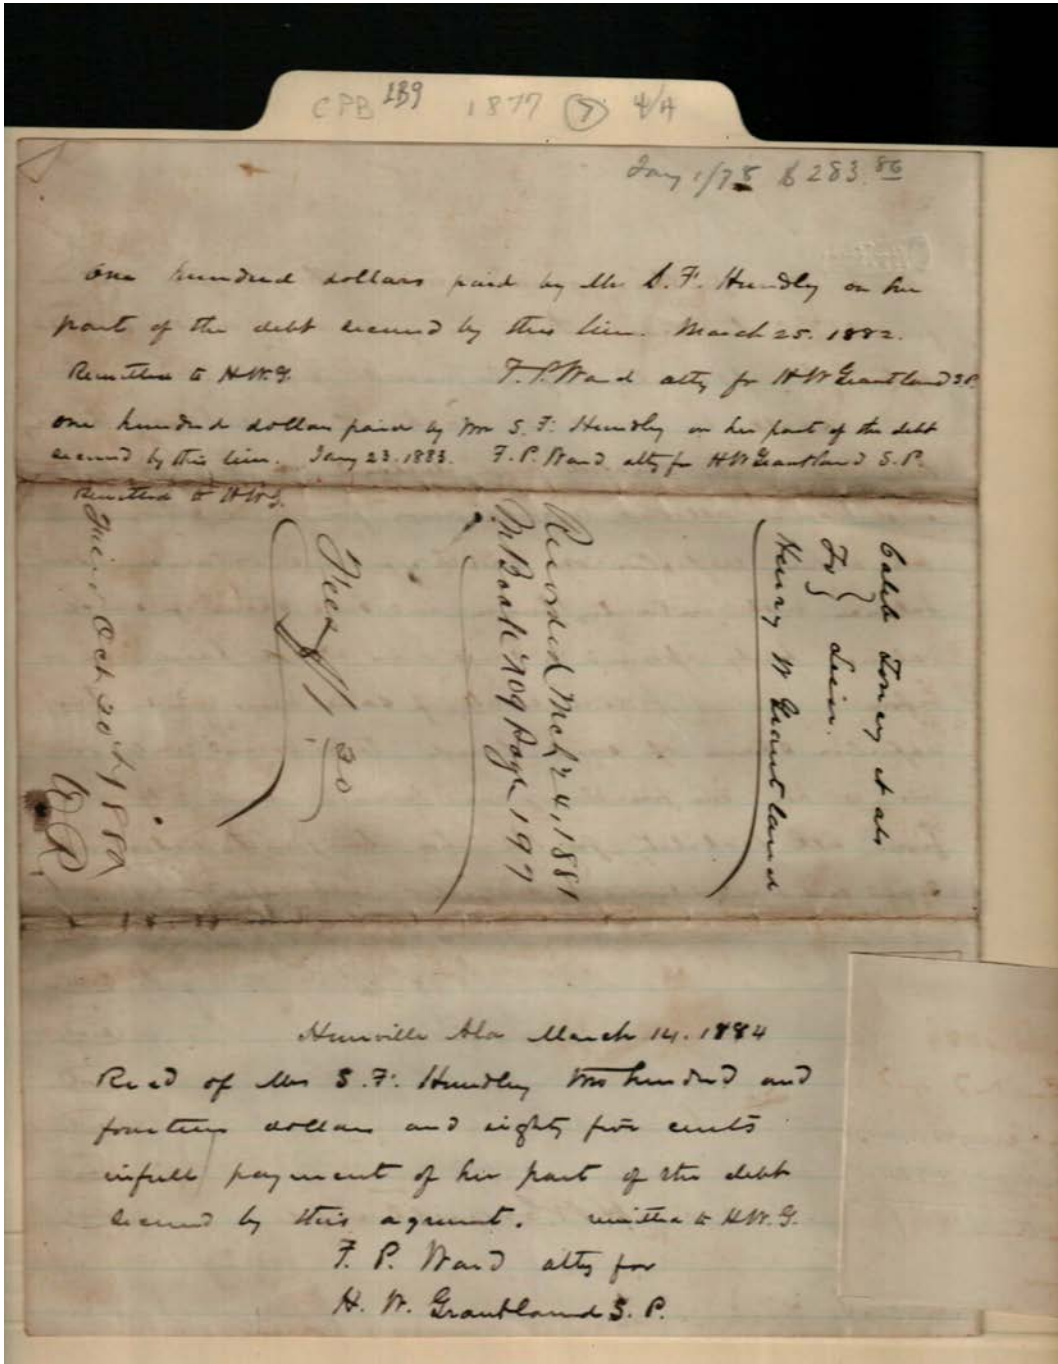 CPB 189 1877 (7) 4/A
Jany 1/78 $283.86
One hundred dollars paid by Mrs S. F. Hundly on her
part of the debt secured by this lien. March 25. 1882.
Remitted to H.W.G. F. P. Ward atty for H W Grantland S P.
One hundred dollars paid by Mrs S. F. Hundly on her part of the debt
secured by this lien. Jany 23. 1883. F. P. Ward atty for H W Grantland S. P.
Remitted to H W G.
Caleb Toney et als
To } Lien.
Henry W Grantland
Recorded Mch 24, 1881
Page 197
Fees $1 20
Oct 30th 1880
Hunville Ala March 14. 1884
Recd of Mrs S. F. Hundly two hundred and
fourteen dollars and eighty five cents
in full payment of her part of the debt
secured by this agrument. remitted to H.W.G.
F. P. Ward atty for
H. W. Grantland S. P.